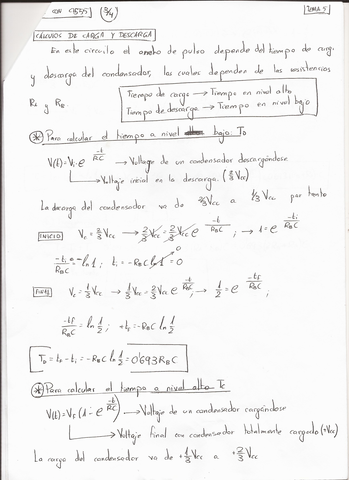 CON C555 (3/4) TEMA 5
CÁLCULOS DE CARGA Y DESCARGA
En este circuito el ancho de pulso depende del tiempo de carga
y descarga del condensador, los cuales dependen de las resistencias
RA y RB.
Tiempo de carga → Tiempo en nivel alto
Tiempo de descarga → Tiempo en nivel bajo
* Para calcular el tiempo a nivel bajo: To
V(t) = Vi · e^(-t/RC) → Voltage de un condensador descargándose
→ Voltaje inicial en la descarga. (2/3 Vcc)
La descarga del condensador va de 2/3 Vcc a 1/3 Vcc por tanto
INICIO Vc = 2/3 Vcc → 2/3 Vcc = 2/3 Vcc e^(-ti/RBC) ; → 1 = e^(-ti/RBC)
-ti/RBC = ln 1 ; ti = -RBC ln 1 = 0
FINAL Vc = 1/3 Vcc → 1/3 Vcc = 2/3 Vcc e^(-tf/RBC) ; → 1/2 = e^(-tf/RBC)
-tf/RBC = ln 1/2 ; tf = -RBC ln 1/2
To = tf - ti = -RBC ln 1/2 = 0'693 RBC
* Para calcular el tiempo a nivel alto Tc
V(t) = VF (1 - e^(-t/RC)) → Voltage de un condensador cargándose
→ Voltaje final con condensador totalmente cargado (+Vcc)
La carga del condensador va de +1/3 Vcc a +2/3 Vcc